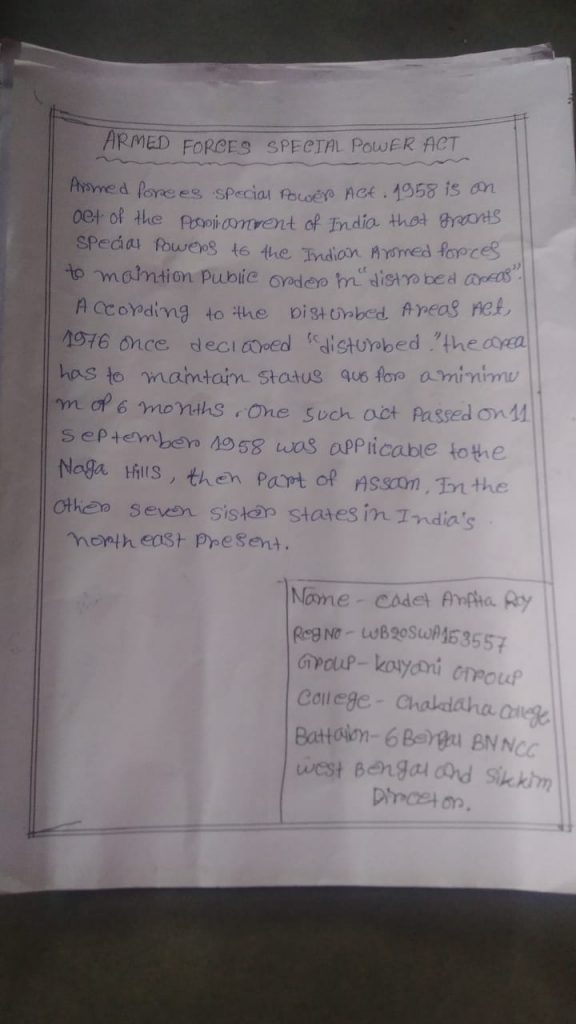 ARMED FORCES SPECIAL POWER ACT
Armed forces special Power Act. 1958 is an
act of the Parliament of India that grants
special Powers to the Indian Armed forces
to maintion Public order in "distrobed areas".
According to the Disturbed Areas Act,
1976 once declared "disturbed." the area
has to maintain status quo for a minimu
m of 6 months. One such act Passed on 11
September 1958 was applicable to the
Naga Hills, then Part of Assam. In the
other seven sister states in India's
north east Present.
Name - Cadet Arpita Roy
Reg No - WB20SWA153557
Group - Kalyani Group
College - Chakdaha College
Battalion - 6 Bengal BN NCC
West Bengal and Sikkim
Director.